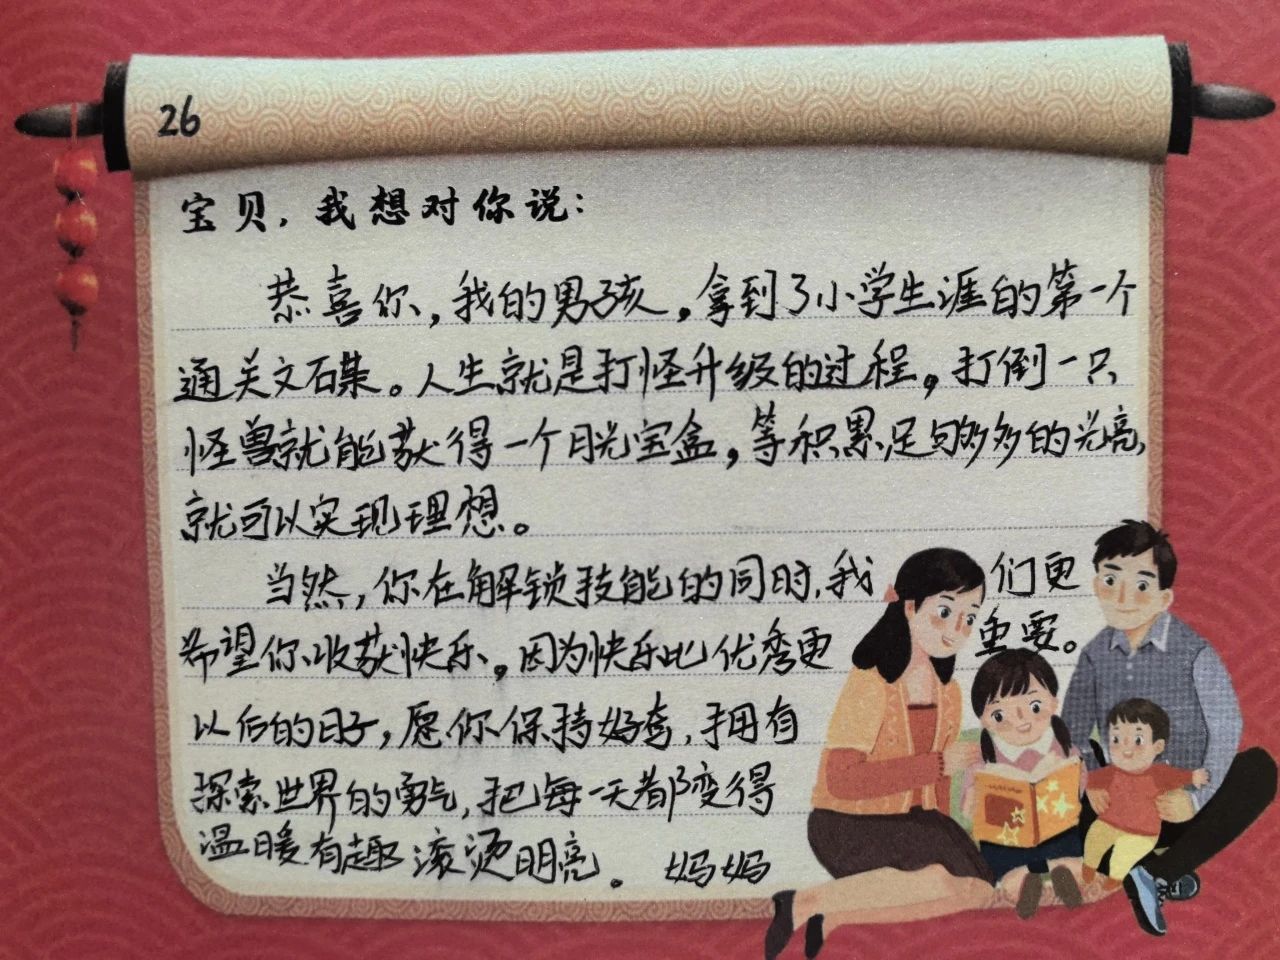 26
宝贝，我想对你说：
恭喜你，我的男孩，拿到了小学生涯的第一个
通关文碟。人生就是打怪升级的过程，打倒一只
怪兽就能获得一个月光宝盒，等积累足够多的光亮，
就可以实现理想。
当然，你在解锁技能的同时，我们更
希望你收获快乐，因为快乐比优秀更重要。
以后的日子，愿你保持好奇，拥有
探索世界的勇气，把每一天都变得
温暖有趣滚烫明亮。 妈妈